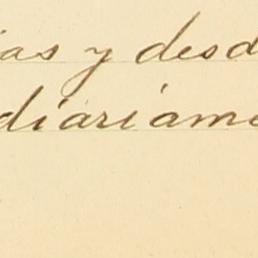 ias y desd
diariame